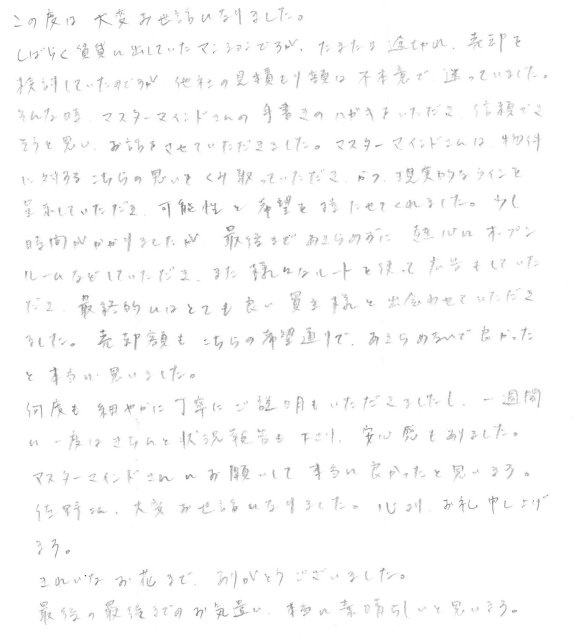 この度は大変お世話になりました。
しばらく賃貸に出していたマンションですが、たまたま途切れ、売却を
検討していたのですが他社の見積もり額は不本意で迷っていました。
そんな時、マスターマインドさんの手書きのハガキをいただき、信頼でき
そうと思い、お話をさせていただきました。マスターマインドさんは、物件
に対するこちらの思いをくみ取っていただき、かつ、現実的なラインを
呈示していただき、可能性と希望を持たせてくれました。少し
時間がかかりましたが、最後まであきらめずに熱心にオープン
ルームなどしていただき、また様々なルートを使って広告もしていた
だき、最終的にはとても良い買主様と出会わせていただき
ました。売却額もこちらの希望通りで、あきらめないで良かった
と本当に思いました。
何度も細やかに丁寧にご説明もいただきましたし、一週間
に一度はきちんと状況報告も下さり、安心感もありました。
マスターマインドさんにお願いして本当に良かったと思います。
佐野さん、大変お世話になりました。心より、お礼申し上げ
ます。
きれいなお花まで、ありがとうございました。
最後の最後までのお気遣い、本当に素晴らしいと思います。